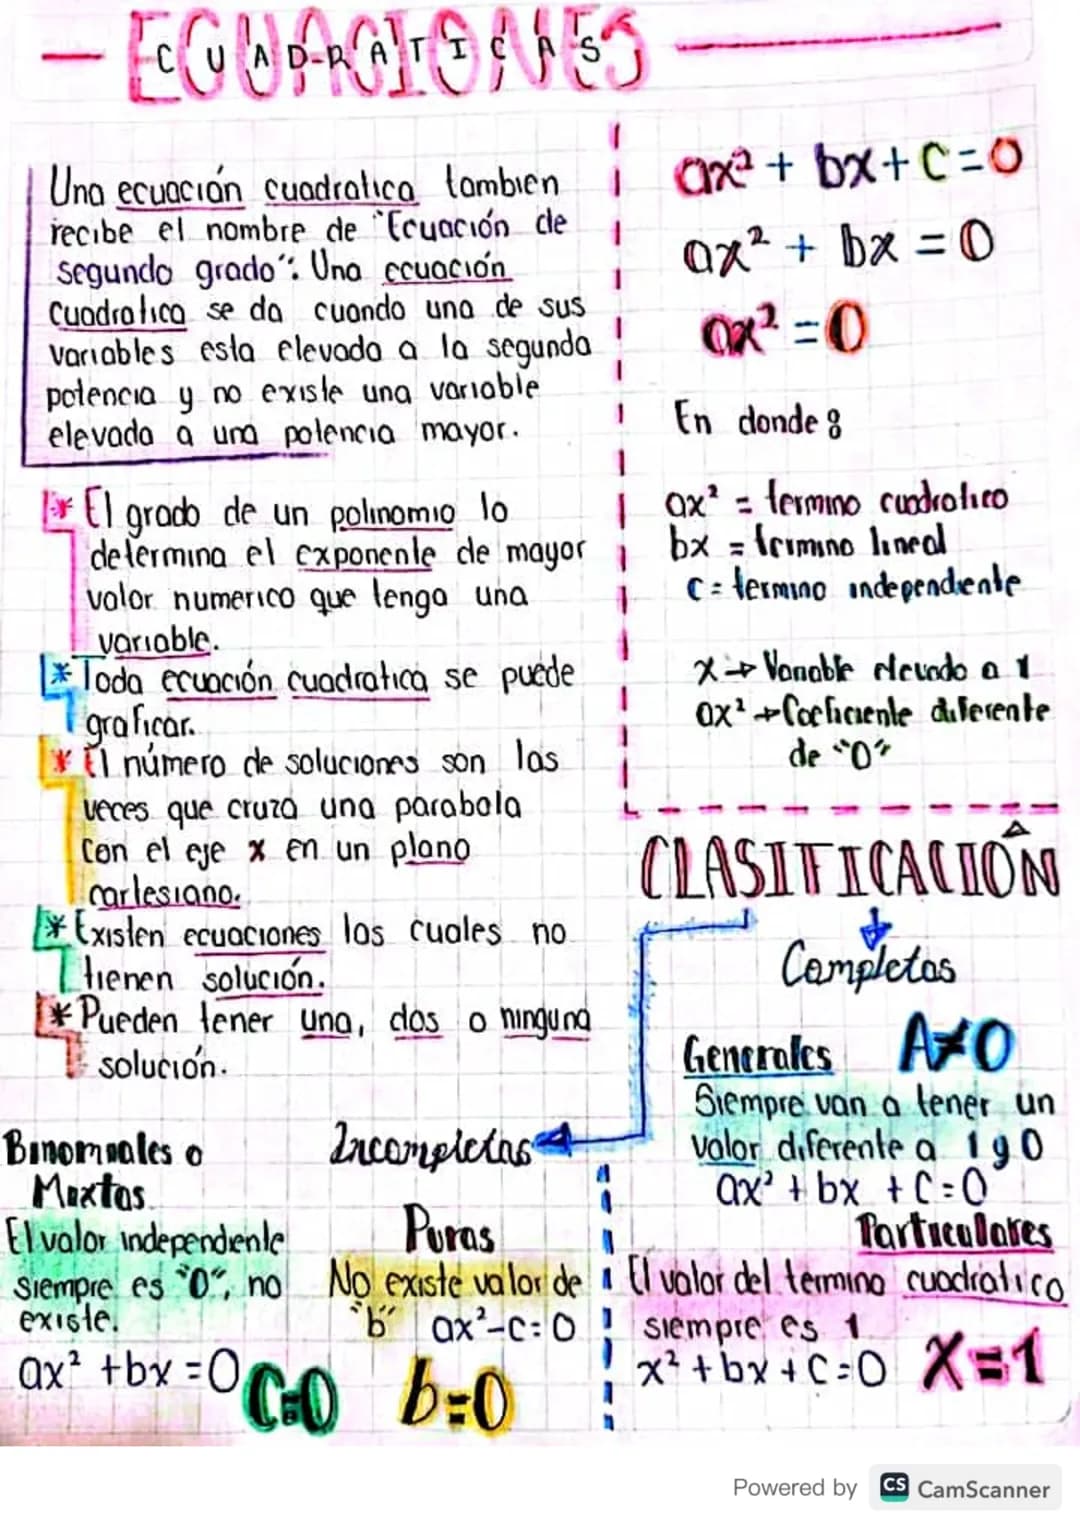 ECUACIONES
CUADRATICAS
Una ecuación cuadratica tambien
recibe el nombre de "Ecuación de
segundo grado". Una ecuación
cuadratica se da cuando una de sus
variables esta elevada a la segunda
potencia y no existe una variable
elevada a una potencia mayor.
* El grado de un polinomio lo
determina el exponente de mayor
valor numerico que tenga una
variable.
* Toda ecuación cuadratica se puede
graficar.
* El número de soluciones son las
veces que cruza una parabola
con el eje x en un plano
cartesiano.
* Existen ecuaciones las cuales no
tienen solución.
* Pueden tener una, dos o ninguna
solución.
ax² + bx + c = 0
ax² + bx = 0
ax² = 0
En donde:
ax² = termino cuadratico
bx = termino lineal
c = termino independiente
x → Variable elevada a 1
ax² → Coeficiente diferente
de "0"
CLASIFICACIÓN
Completas
Generales A≠0
Siempre van a tener un
valor diferente a 1 y 0
ax² + bx + c = 0
Particulares
El valor del termino cuadratico
siempre es 1
x² + bx + c = 0 X=1
Incompletas
Binomiales o
Mixtas
El valor independiente
siempre es "0", no
existe.
ax² + bx = 0 C=0
Puras
No existe valor de
"b" ax² - c = 0
b=0
Powered by CS CamScanner